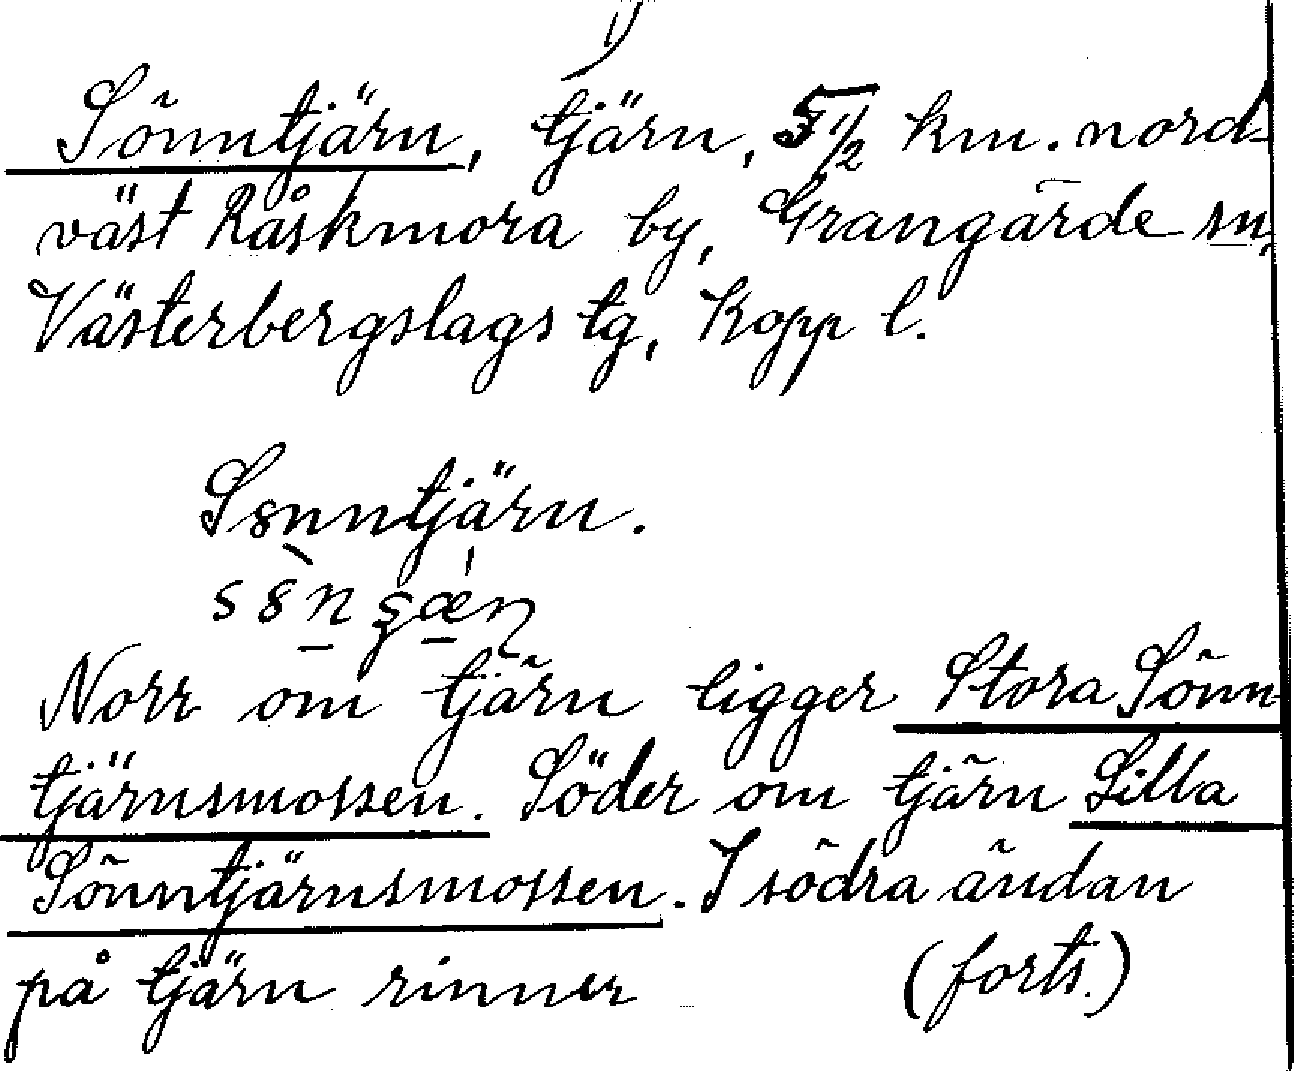 1)
Sönntjärn, tjärn, 5 1/2 km. nord-
väst Råskmora by, Grangärde sn,
Västerbergslags tg, Kopp l.
Ssnntjärn.
Norr om tjärn ligger Stora Sönn
tjärnsmossen. Söder om tjärn Lilla
Sönntjärnsmossen. I södra ändan
på tjärn rinner (forts.)